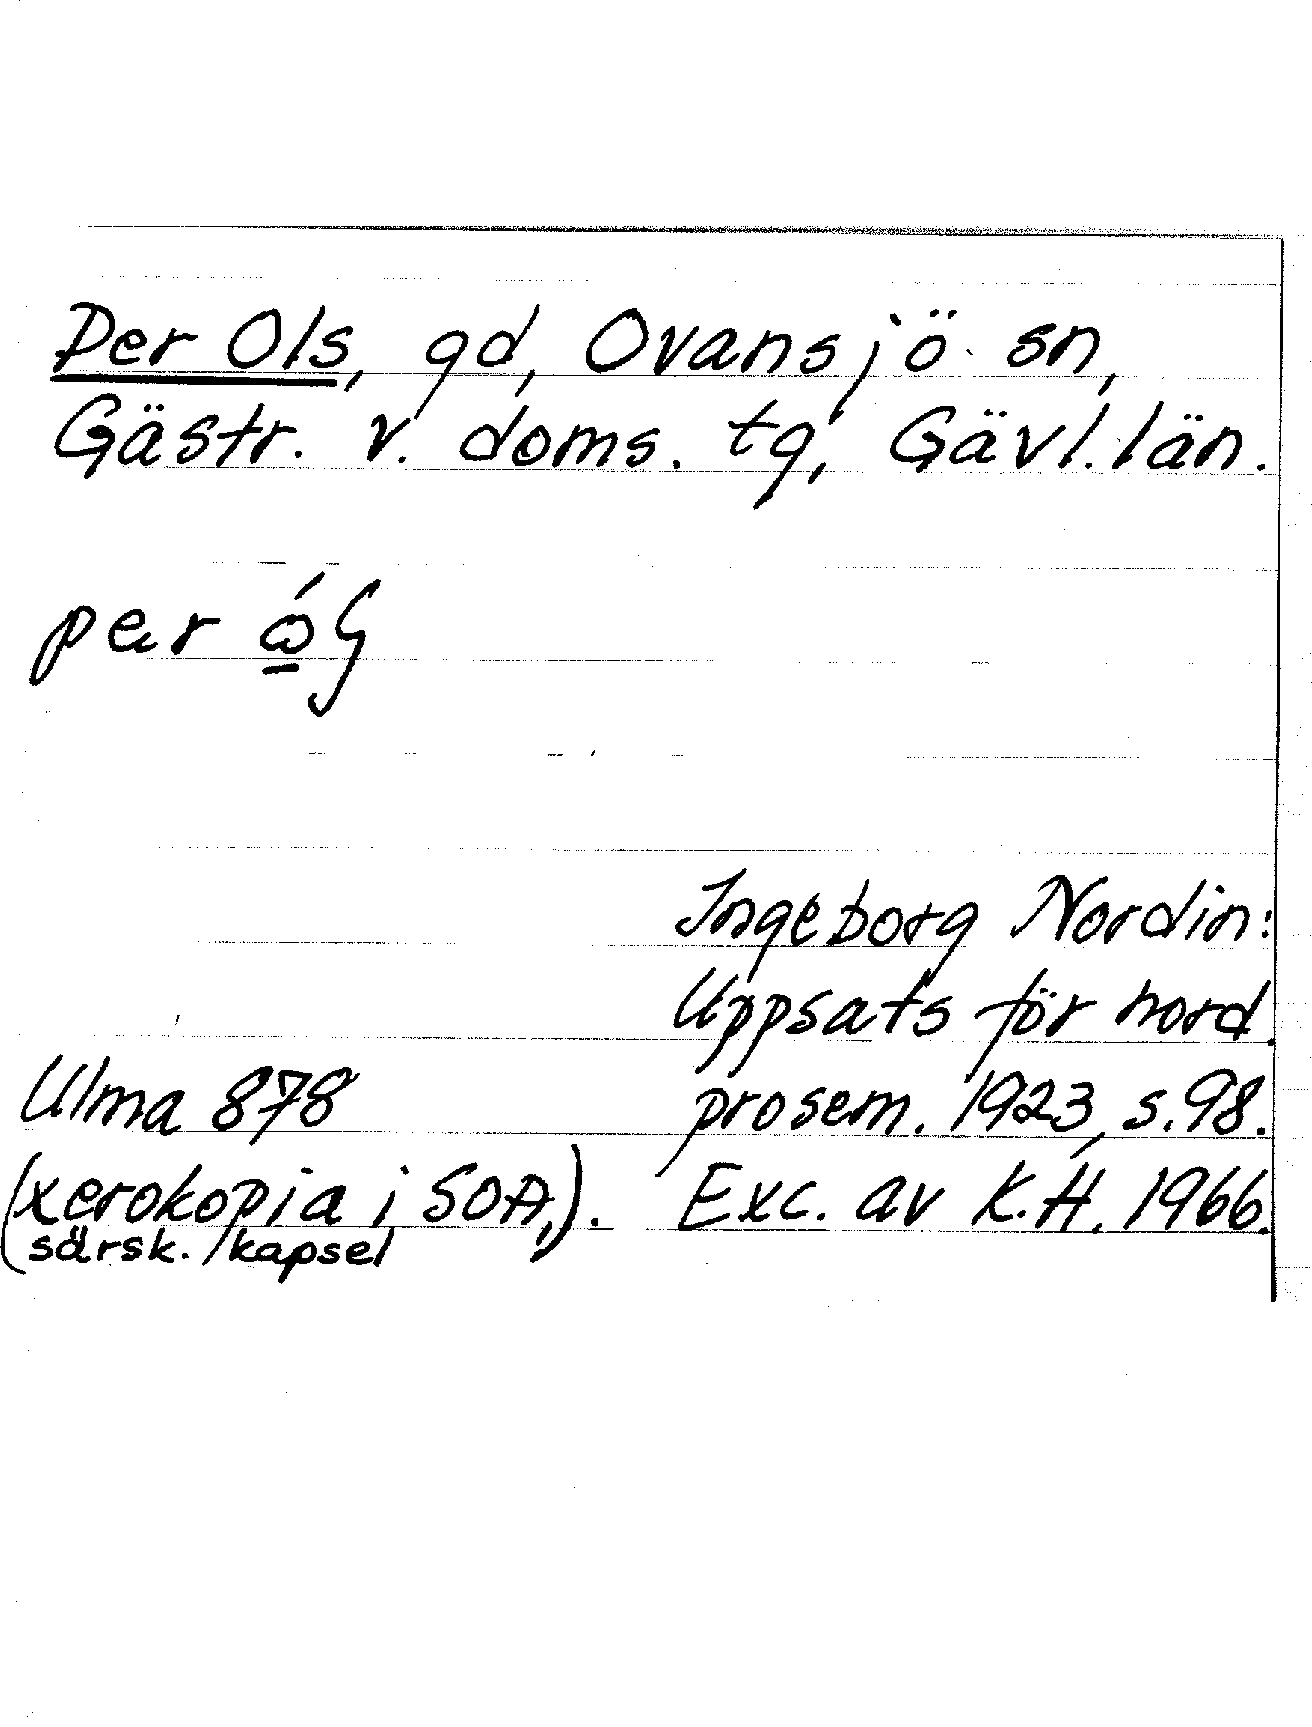 Per Ols, gd, Ovansjö sn,
Gästr. v. doms. tg, Gävl. län.
per
Ingeborg Nordin:
Uppsats för nord.
prosem. 1923, s. 98.
Exc. av K.H. 1966.
Ulma 878
(xerokopia i SOA,).
särsk. kapsel